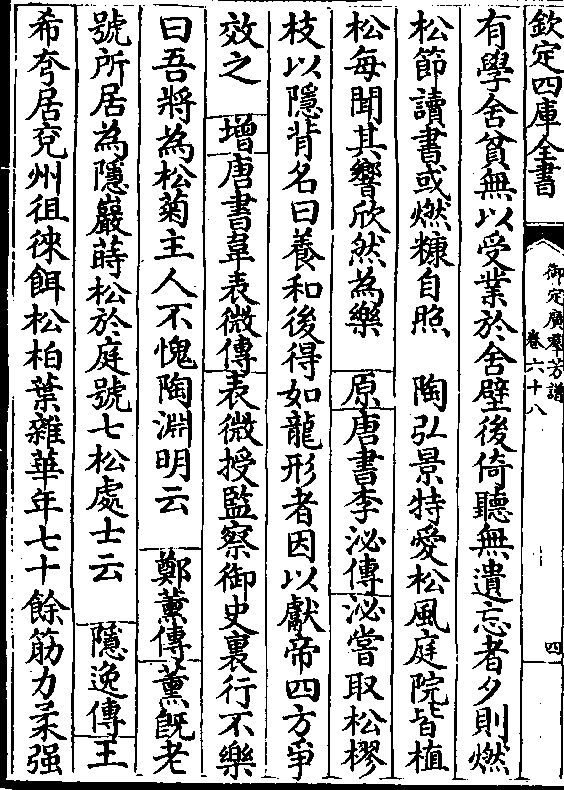 欽定四庫全書
御定廣羣芳譜
卷六十八
四
有學舍貧無以受業於舍壁後倚聽無遺忘者夕則燃
松節讀書或燃糠自照 陶弘景特愛松風庭院皆植
松每聞其響欣然為樂 原唐書李泌傳泌嘗取松樛
枝以隱背名曰養和後得如龍形者因以獻帝四方爭
效之 增唐書韋表微傳表微授監察御史裏行不樂
曰吾將為松菊主人不愧陶淵明云 鄭薰傳薰既老
號所居為隱巖蒔松於庭號七松處士云 隱逸傳王
希夸居兗州徂徠餌松柏葉雜華年七十餘筋力柔强